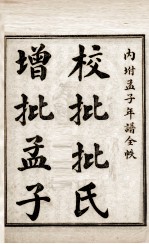 內坿孟子年譜全帙
校批批氏
增批孟子